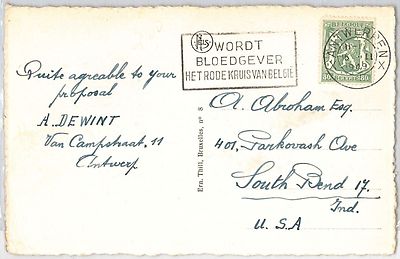 Quite agreable to your
proposal
A. DEWINT
Van Campstraat. 11
Antwerp
WORDT
BLOEDGEVER
HET RODE KRUIS VAN BELGIE
ANTWERPEN X
BELGIQUE
80 80
Ern. Thill, Bruxelles, nº 8
A. Abroham Esq.
401, Parkovash Ave
South Bend 17.
Ind.
U.S.A